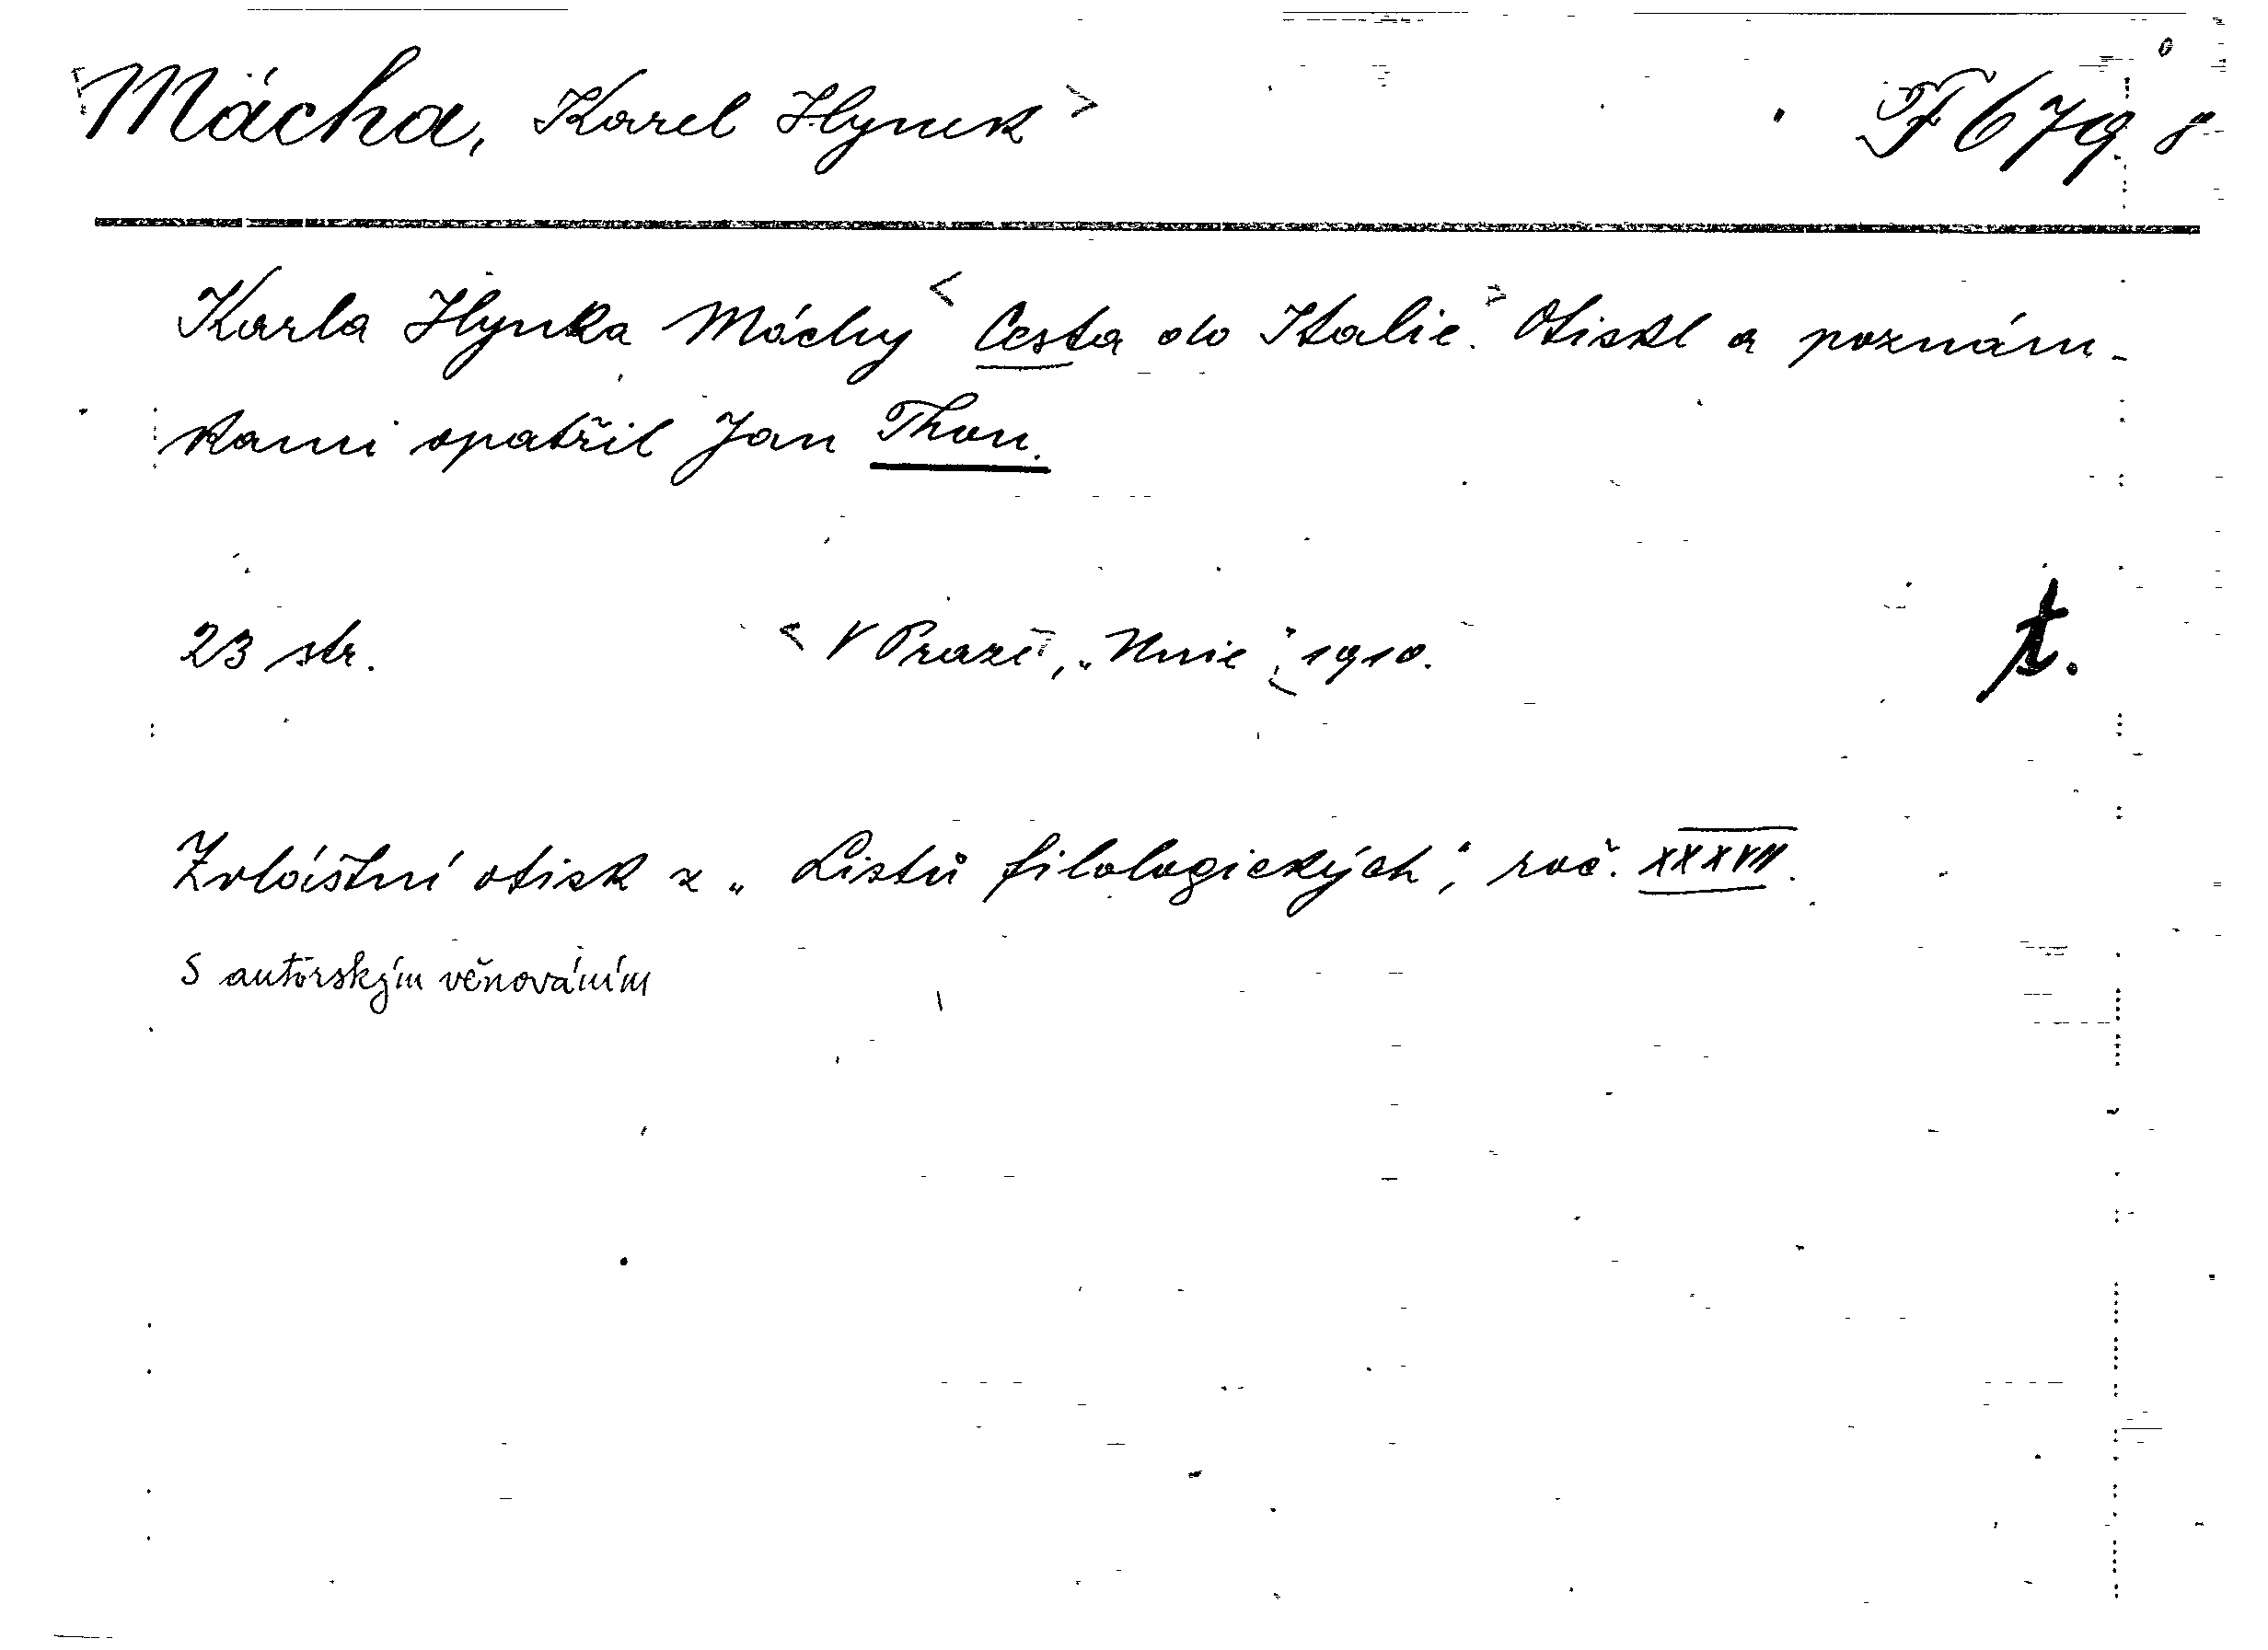 <Mácha, Karel Hynek> F 679.
Karla Hynka Máchy <Cesta do Italie.> Otiskl a poznám-
kami opatřil Jan Thon.
23 str. <V Praze>, „Unie“, 1910. t.
Zvláštní otisk z „Listů filologických“, roč. XXXVII.
S autorským věnováním